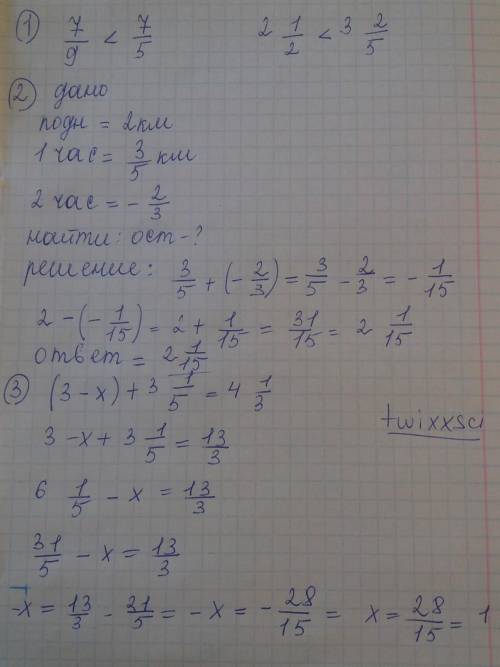 ① 7/9 < 7/5     2 1/2 < 3 2/5
② дано
подн = 2км
1 час = 3/5 км
2 час = - 2/3
найти: ост - ?
решение: 3/5 + (- 2/3) = 3/5 - 2/3 = - 1/15
2 - (- 1/15) = 2 + 1/15 = 31/15 = 2 1/15
ответ = 2 1/15
③ (3 - x) + 3 1/5 = 4 1/3
twixxsci
3 - x + 3 1/5 = 13/3
6 1/5 - x = 13/3
31/5 - x = 13/3
-x = 13/3 - 31/5 = - x = - 28/15 = x = 28/15 = 1